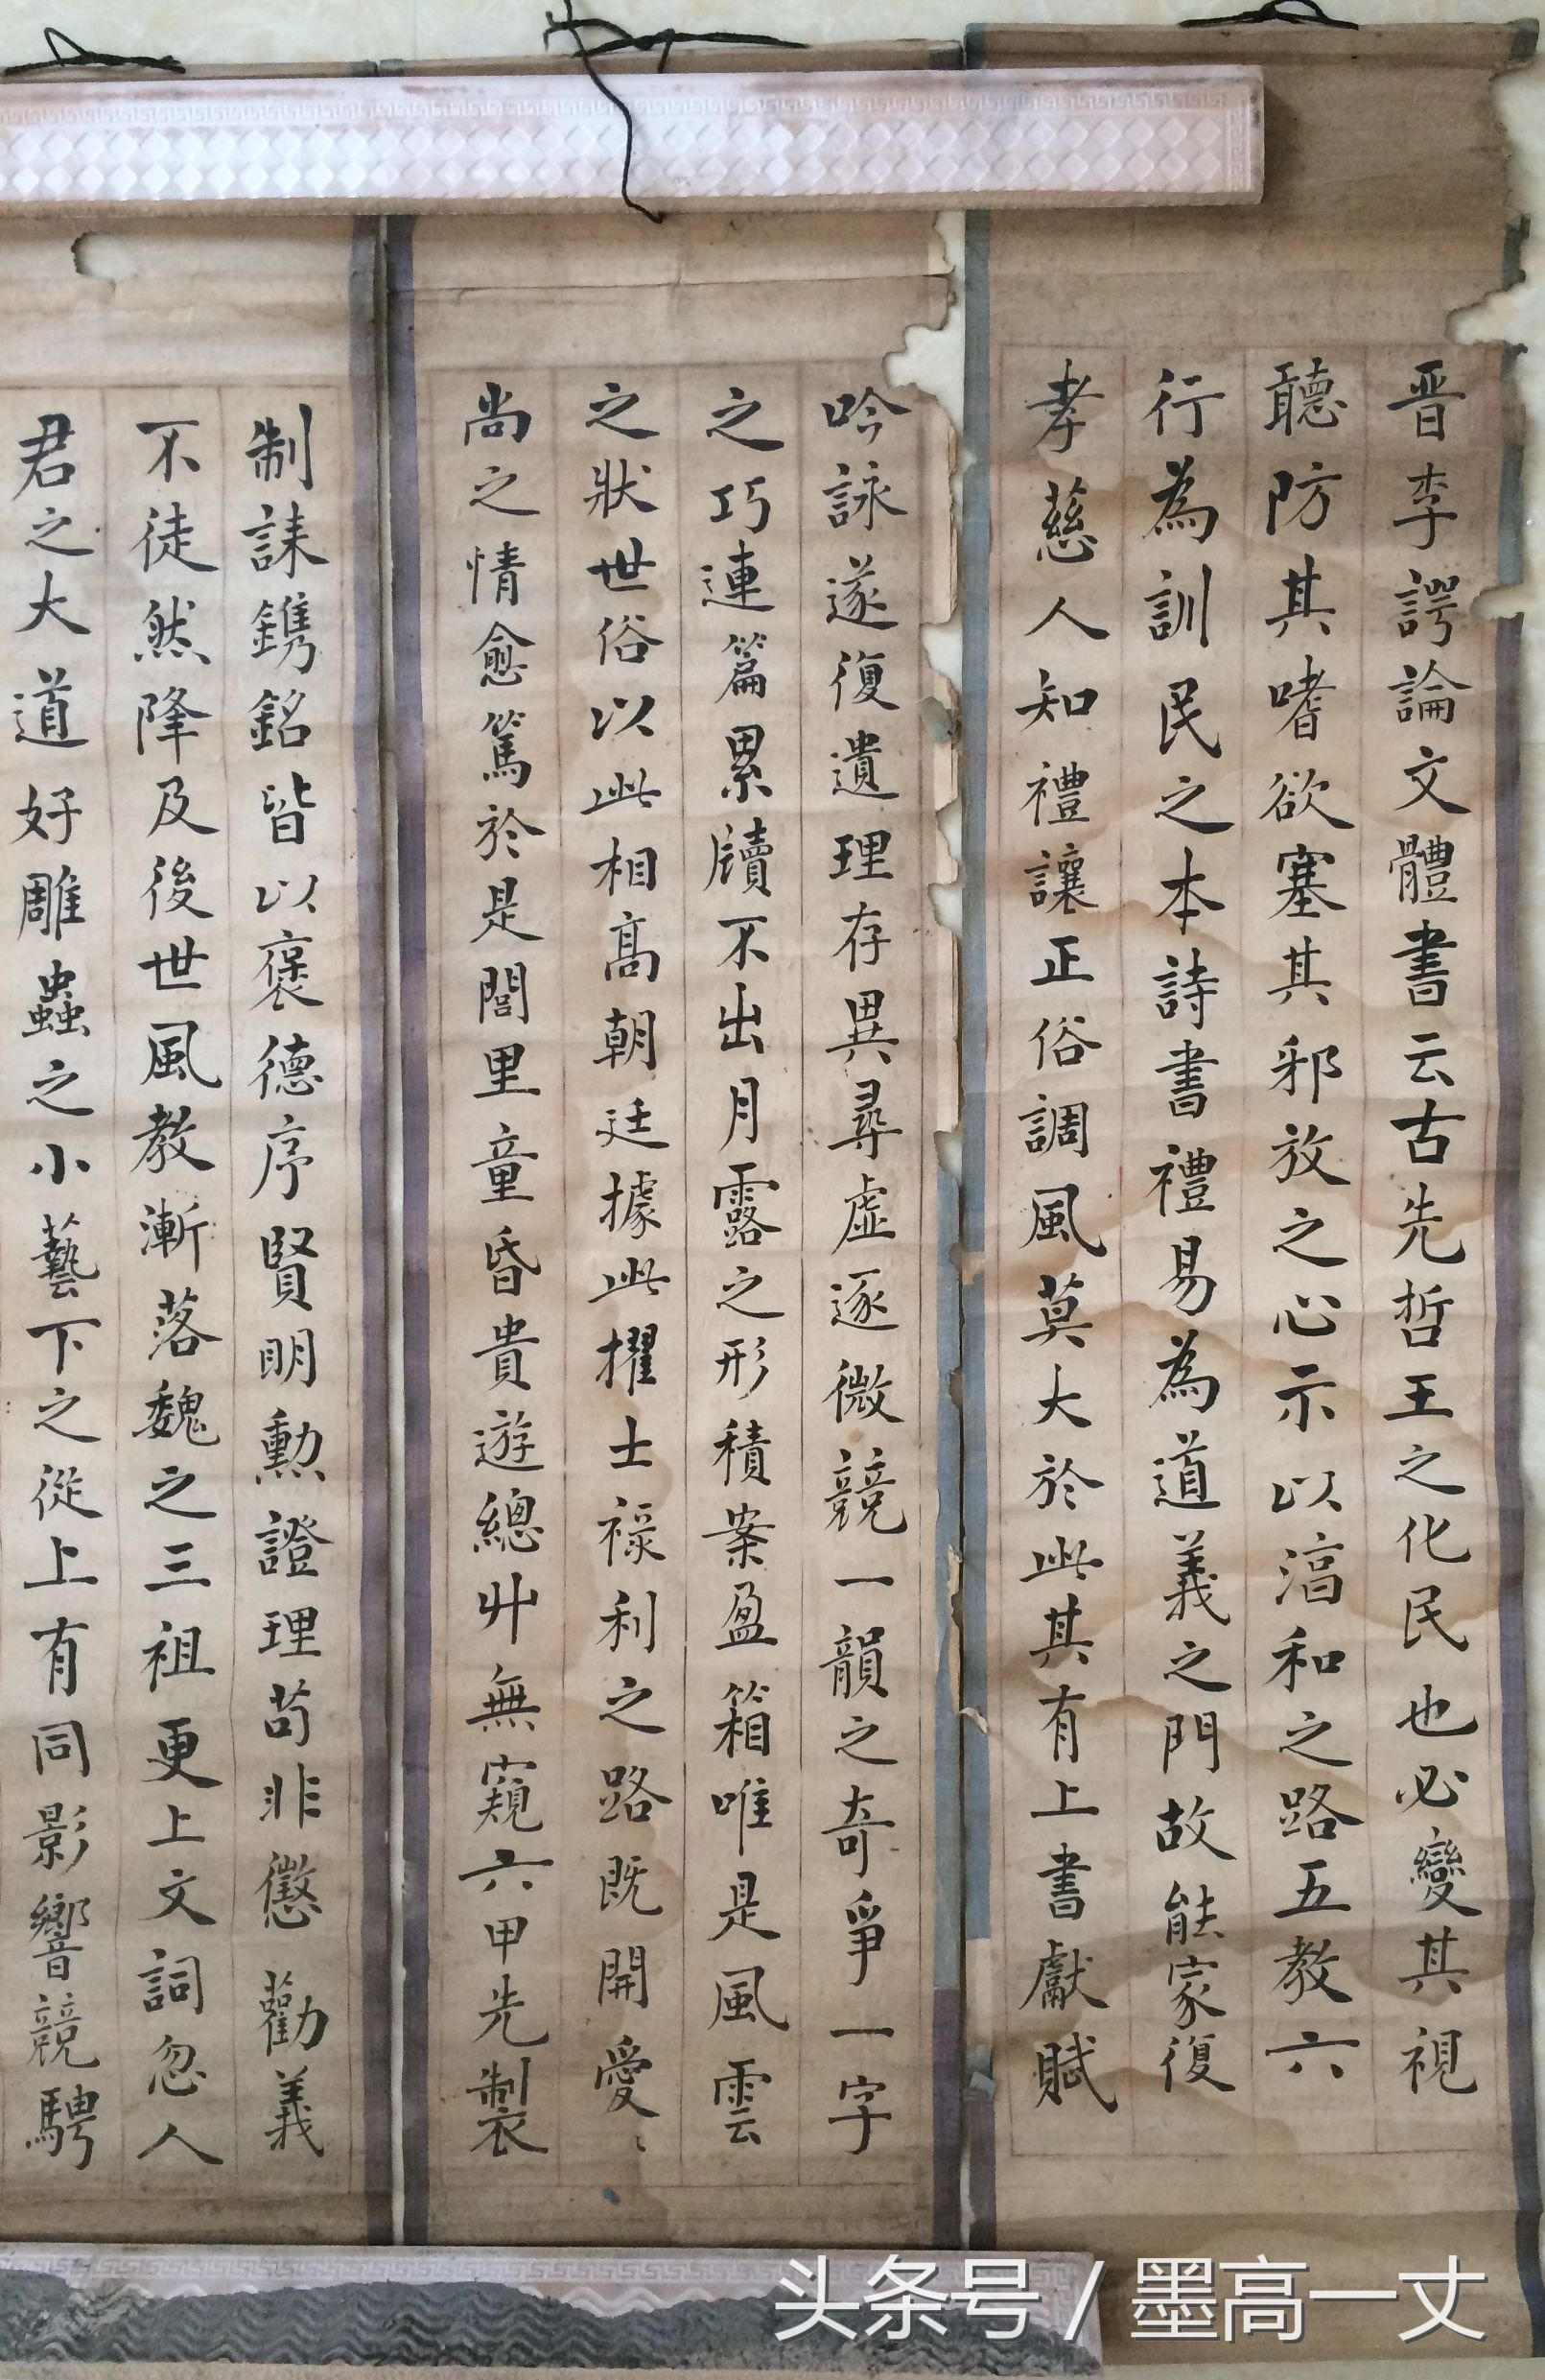 晋李諤論文體書云古先哲王之化民也必變其視
聽防其嗜欲塞其邪放之心示以湻和之路五教六
行為訓民之本詩書禮易為道義之門故能家復
孝慈人知禮讓正俗調風莫大於此其有上書獻賦
制誄鐫銘皆以褒德序賢明勲證理苟非懲勸義
不徒然降及後世風教漸落魏之三祖更上文詞忽人
君之大道好雕蟲之小藝下之從上有同影響競騁
吟詠遂復遺理存異尋虛逐微競一韻之奇爭一字
之巧連篇累牘不出月露之形積案盈箱唯是風雲
之狀世俗以此相高朝廷據此擢士祿利之路既開愛
尚之情愈篤於是閭里童昏貴遊總丱無窺六甲先製
头条号 / 墨高一丈